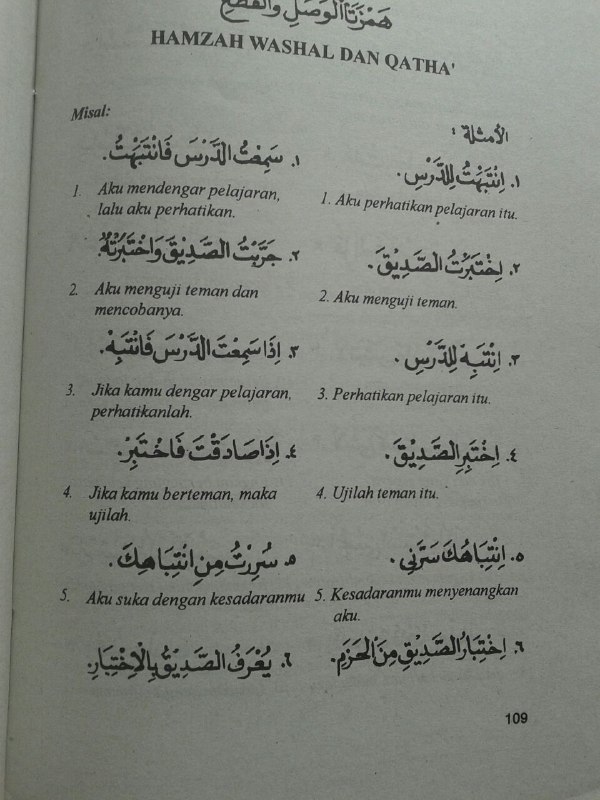 هَمْزَتَا الْوَصْلِ وَالْقَطْعِ
HAMZAH WASHAL DAN QATHA'
Misal:
الأمثلة :
١. اِنْتَبَهْتُ لِلدَّرْسِ.
١. سَمِعْتُ الدَّرْسَ فَانْتَبَهْتُ.
1. Aku mendengar pelajaran,
lalu aku perhatikan.
1. Aku perhatikan pelajaran itu.
٢. اِخْتَبَرْتُ الصَّدِيْقَ.
٢. جَرَّبْتُ الصَّدِيْقَ وَاخْتَبَرْتُهُ.
2. Aku menguji teman dan
mencobanya.
2. Aku menguji teman.
٣. اِنْتَبِهْ لِلدَّرْسِ.
٣. اِذَا سَمِعْتَ الدَّرْسَ فَانْتَبِهْ.
3. Jika kamu dengar pelajaran,
perhatikanlah.
3. Perhatikan pelajaran itu.
٤. اِخْتَبِرِ الصَّدِيْقَ.
٤. اِذَا صَادَقْتَ فَاخْتَبِرْ.
4. Jika kamu berteman, maka
ujilah.
4. Ujilah teman itu.
٥. اِنْتِبَاهُكَ سَرَّنِي.
٥. سُرِرْتُ مِنِ انْتِبَاهِكَ.
5. Aku suka dengan kesadaranmu
5. Kesadaranmu menyenangkan
aku.
٦. اِخْتِبَارُ الصَّدِيْقِ مِنَ الْحَزَمِ.
٦. يُعْرَفُ الصَّدِيْقُ بِالْاِخْتِبَارِ.
109